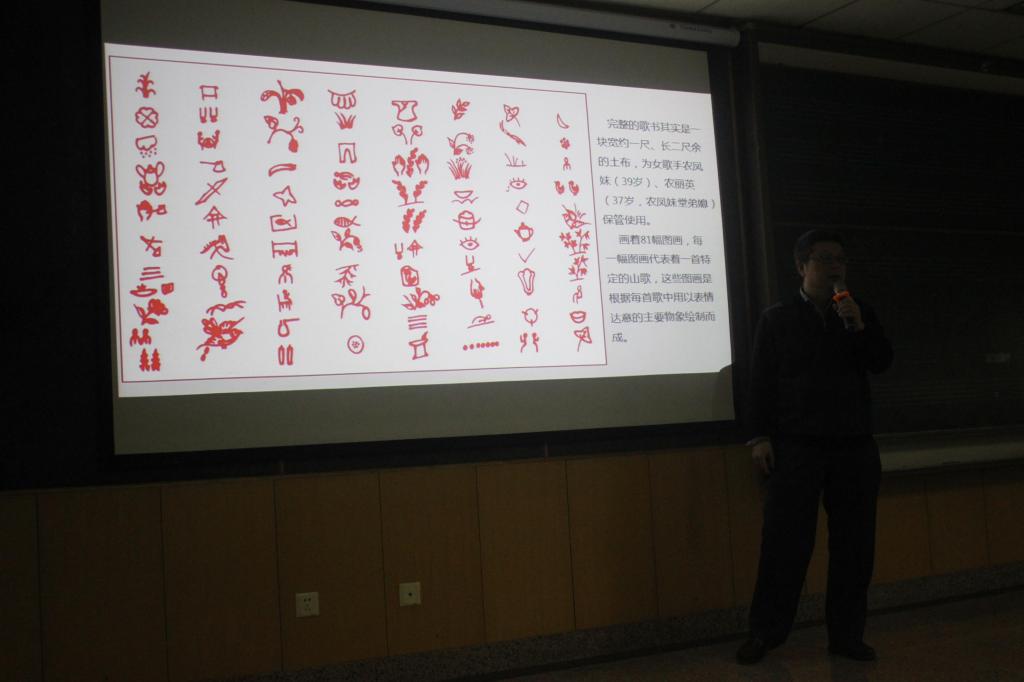 完整的歌书其实是一
块宽约一尺、长二尺余
的土布，为女歌手农凤
妹（39岁）、农丽英
（37岁，农凤妹堂弟媳）
保管使用。
画着81幅图画，每
一幅图画代表着一首特
定的山歌，这些图画是
根据每首歌中用以表情
达意的主要物象绘制而
成。